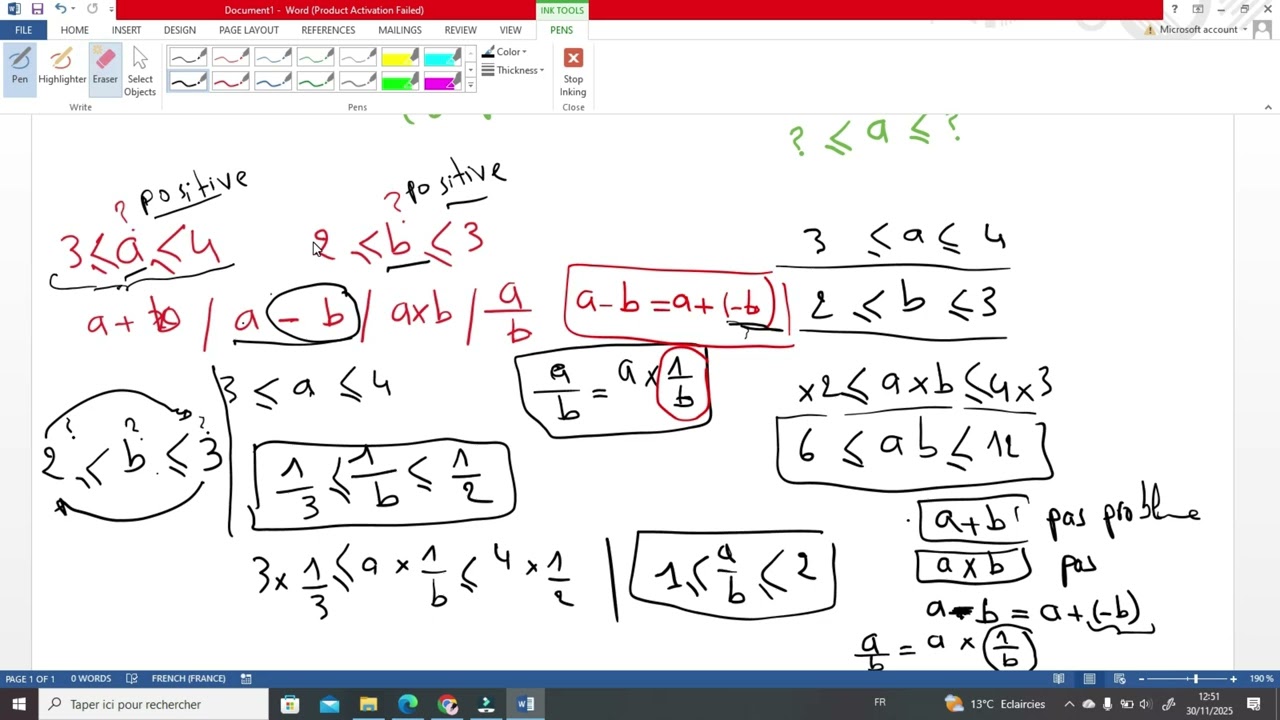 Document1 - Word (Product Activation Failed)
INK TOOLS
FILE HOME INSERT DESIGN PAGE LAYOUT REFERENCES MAILINGS REVIEW VIEW PENS
Microsoft account
Pen Highlighter Eraser Select Objects
Color
Thickness
Stop Inking
Write Pens Close
? ≤ a ≤ ?
? positive
? positive
3 ≤ a ≤ 4
2 ≤ b ≤ 3
a + b / a - b / a×b / a/b
a - b = a + (-b)
3 ≤ a ≤ 4
2 ≤ b ≤ 3
3 ≤ a ≤ 4
a/b = a × 1/b
×2 ≤ a×b ≤ 4×3
? ? ?
2 ≤ b ≤ 3
1/3 ≤ 1/b ≤ 1/2
6 ≤ ab ≤ 12
a+b pas problme
3 × 1/3 ≤ a × 1/b ≤ 4 × 1/2
1 ≤ a/b ≤ 2
a×b pas
a - b = a + (-b)
a/b = a × 1/b
PAGE 1 OF 1 0 WORDS FRENCH (FRANCE)
190 %
Taper ici pour rechercher
FR
13°C Eclaircies
12:51
30/11/2025